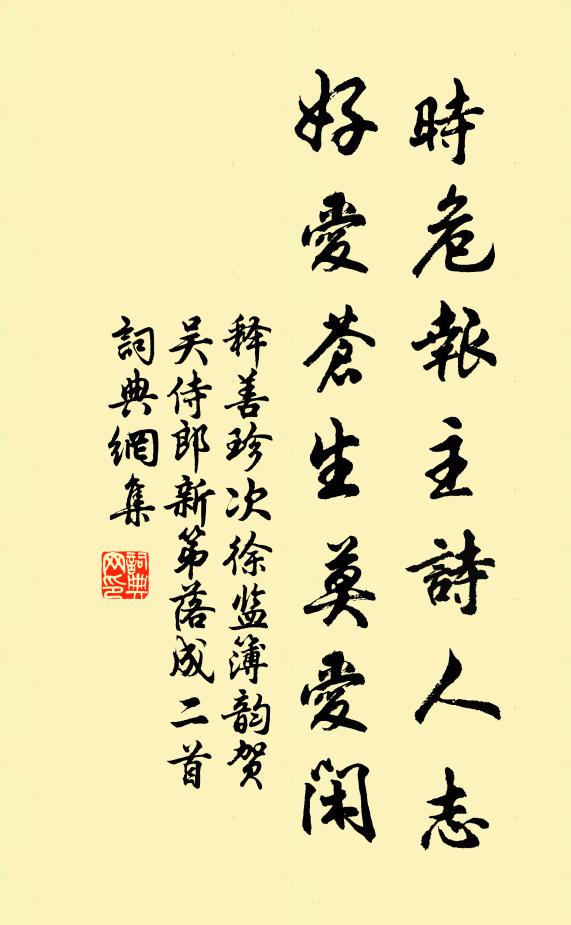 時危報主詩人志
好愛蒼生莫愛閑
释善珍次徐监簿韵贺
吴侍郎新第落成二首
詞典網集
詞典网印